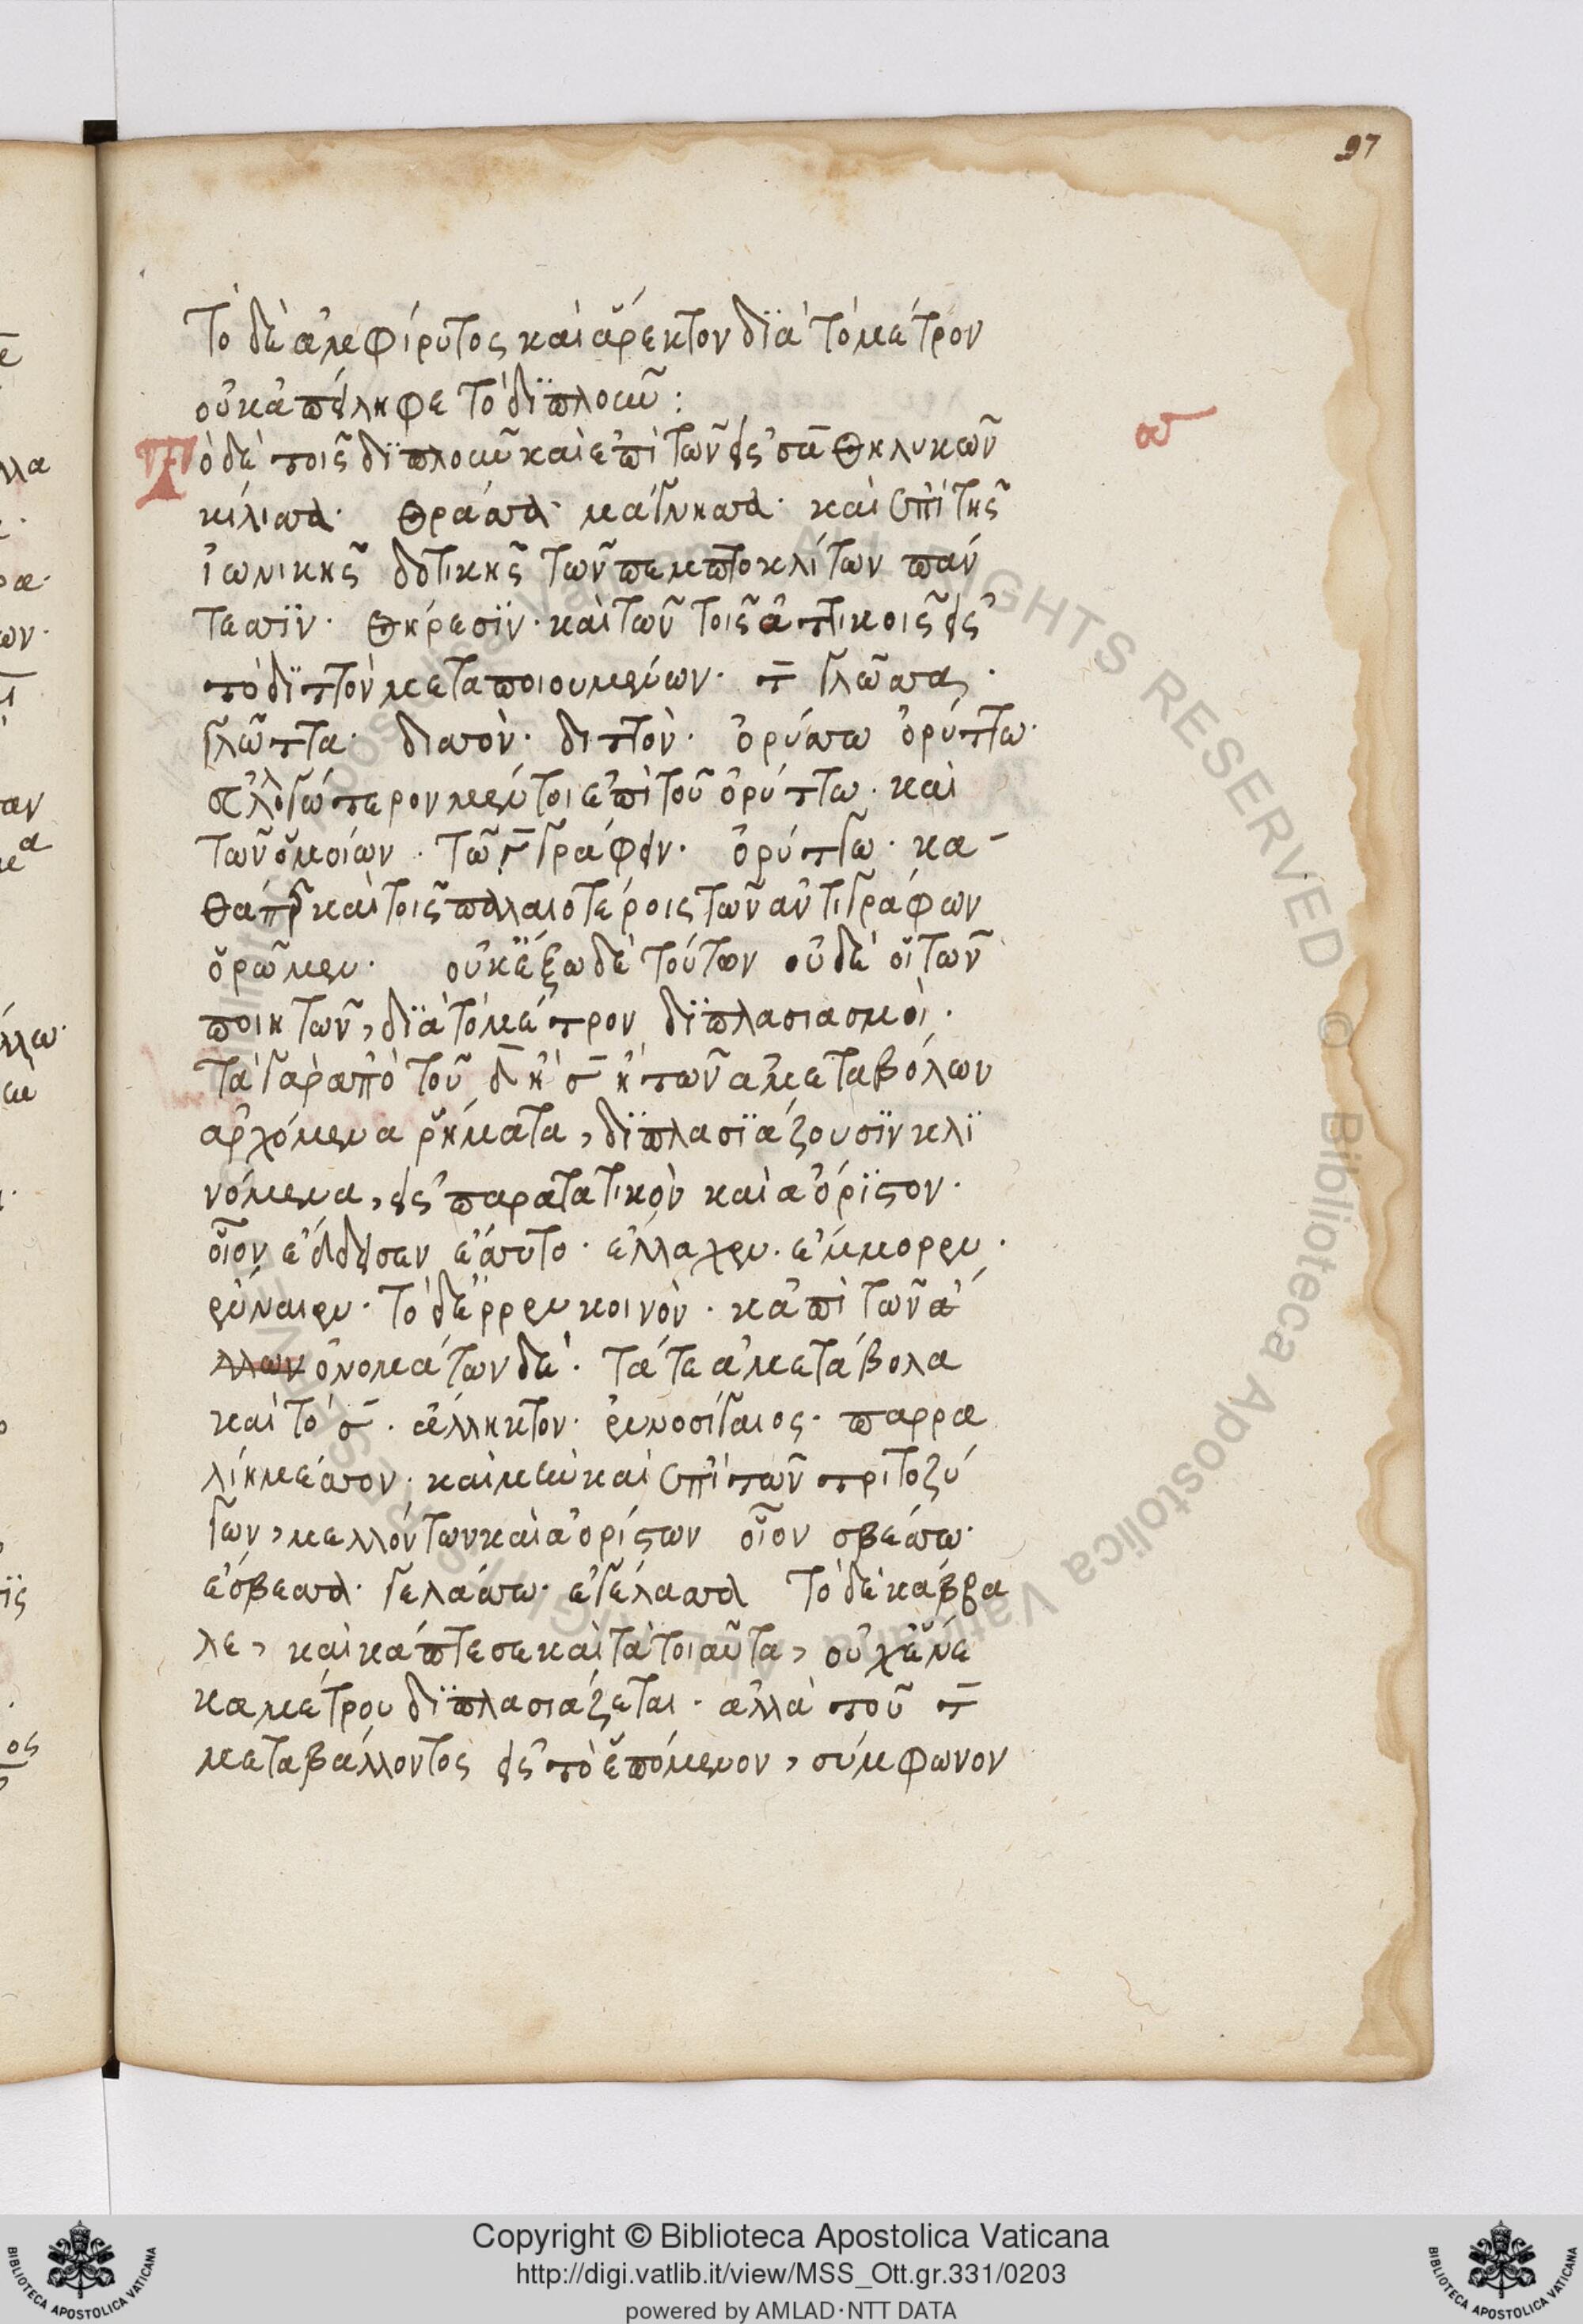 97
Το δὲ ἀμφίρυτος καὶ ἄρεκτον διὰ τὸ μέτρον
οὐκ ἀπείληφε τὸ διπλοῦν:
σσ
Τὸ δὲ τοῖς διπλοῦν καὶ ἐπὶ τῶν εἰς σα θηλυκῶν
κίλισσα· θρᾶσσα· καὶ ἐπὶ τῆς
ἰωνικῆς δοτικῆς τῶν πεμπτοκλίτων πάν
τεσσιν· θήρεσιν· καὶ τῶν τοῖς ἀττικοῖς εἰς
τὸ διττὸν μεταποιουμένων· τ̄ γλῶσσα·
γλῶττα· δισσὸν· διττὸν· ὀρύσσω ὀρύττω·
μέντοι ἐπὶ τοῦ ὀρύττω· καὶ
τῶν ὁμοίων· τῶ γ̄ γράφειν· ὀρύττω· κα-
θάπερ καὶ τοῖς παλαιοτέροις τῶν ἀντιγράφων
ὁρῶμεν· οὐκ ἔξω δὲ τούτων οὐδὲ οἱ τῶν
ποιητῶν, διὰ τὸ μέτρον διπλασιασμοί·
Τὰ γὰρ ἀπὸ τοῦ δ̄ ἢ σ̄ ἢ τῶν ἀμεταβόλων
ἀρχόμενα ῥήματα, διπλασιάζουσιν κλι
νόμενα, εἰς παρατατικὸν καὶ ἀόριστον·
οἷον ἔδδεισεν ἔσσυτο· ἔλλαχεν· ἔμμορεν·
ἔνναιεν· Τὸ δὲ ἔρρεν κοινὸν· κἀπὶ τῶν ἄ
λλων ὀνομάτων δὲ· τά τε ἀμετάβολα
καὶ τὸ σ̄· ἄλληκτον· ἐννοσίγαιος· παρρα
λίη μέσσον· καὶ μὲν καὶ ἐπὶ τῶν τρίτο ζύ
γων, μελλόντων καὶ ἀορίστων οἷον σβέσσω·
ἔσβεσσα· γελάσσω· ἐγέλασσα Τὸ δὲ κάββα
λε, καὶ κάππεσε καὶ τὰ τοιαῦτα, οὐχ ἕνε
κα μέτρου διπλασιάζεται· ἀλλὰ τοῦ τ̄
μεταβάλλοντος εἰς τὸ ἑπόμενον, σύμφωνον
Copyright © Biblioteca Apostolica Vaticana
http://digi.vatlib.it/view/MSS_Ott.gr.331/0203
powered by AMLAD·NTT DATA